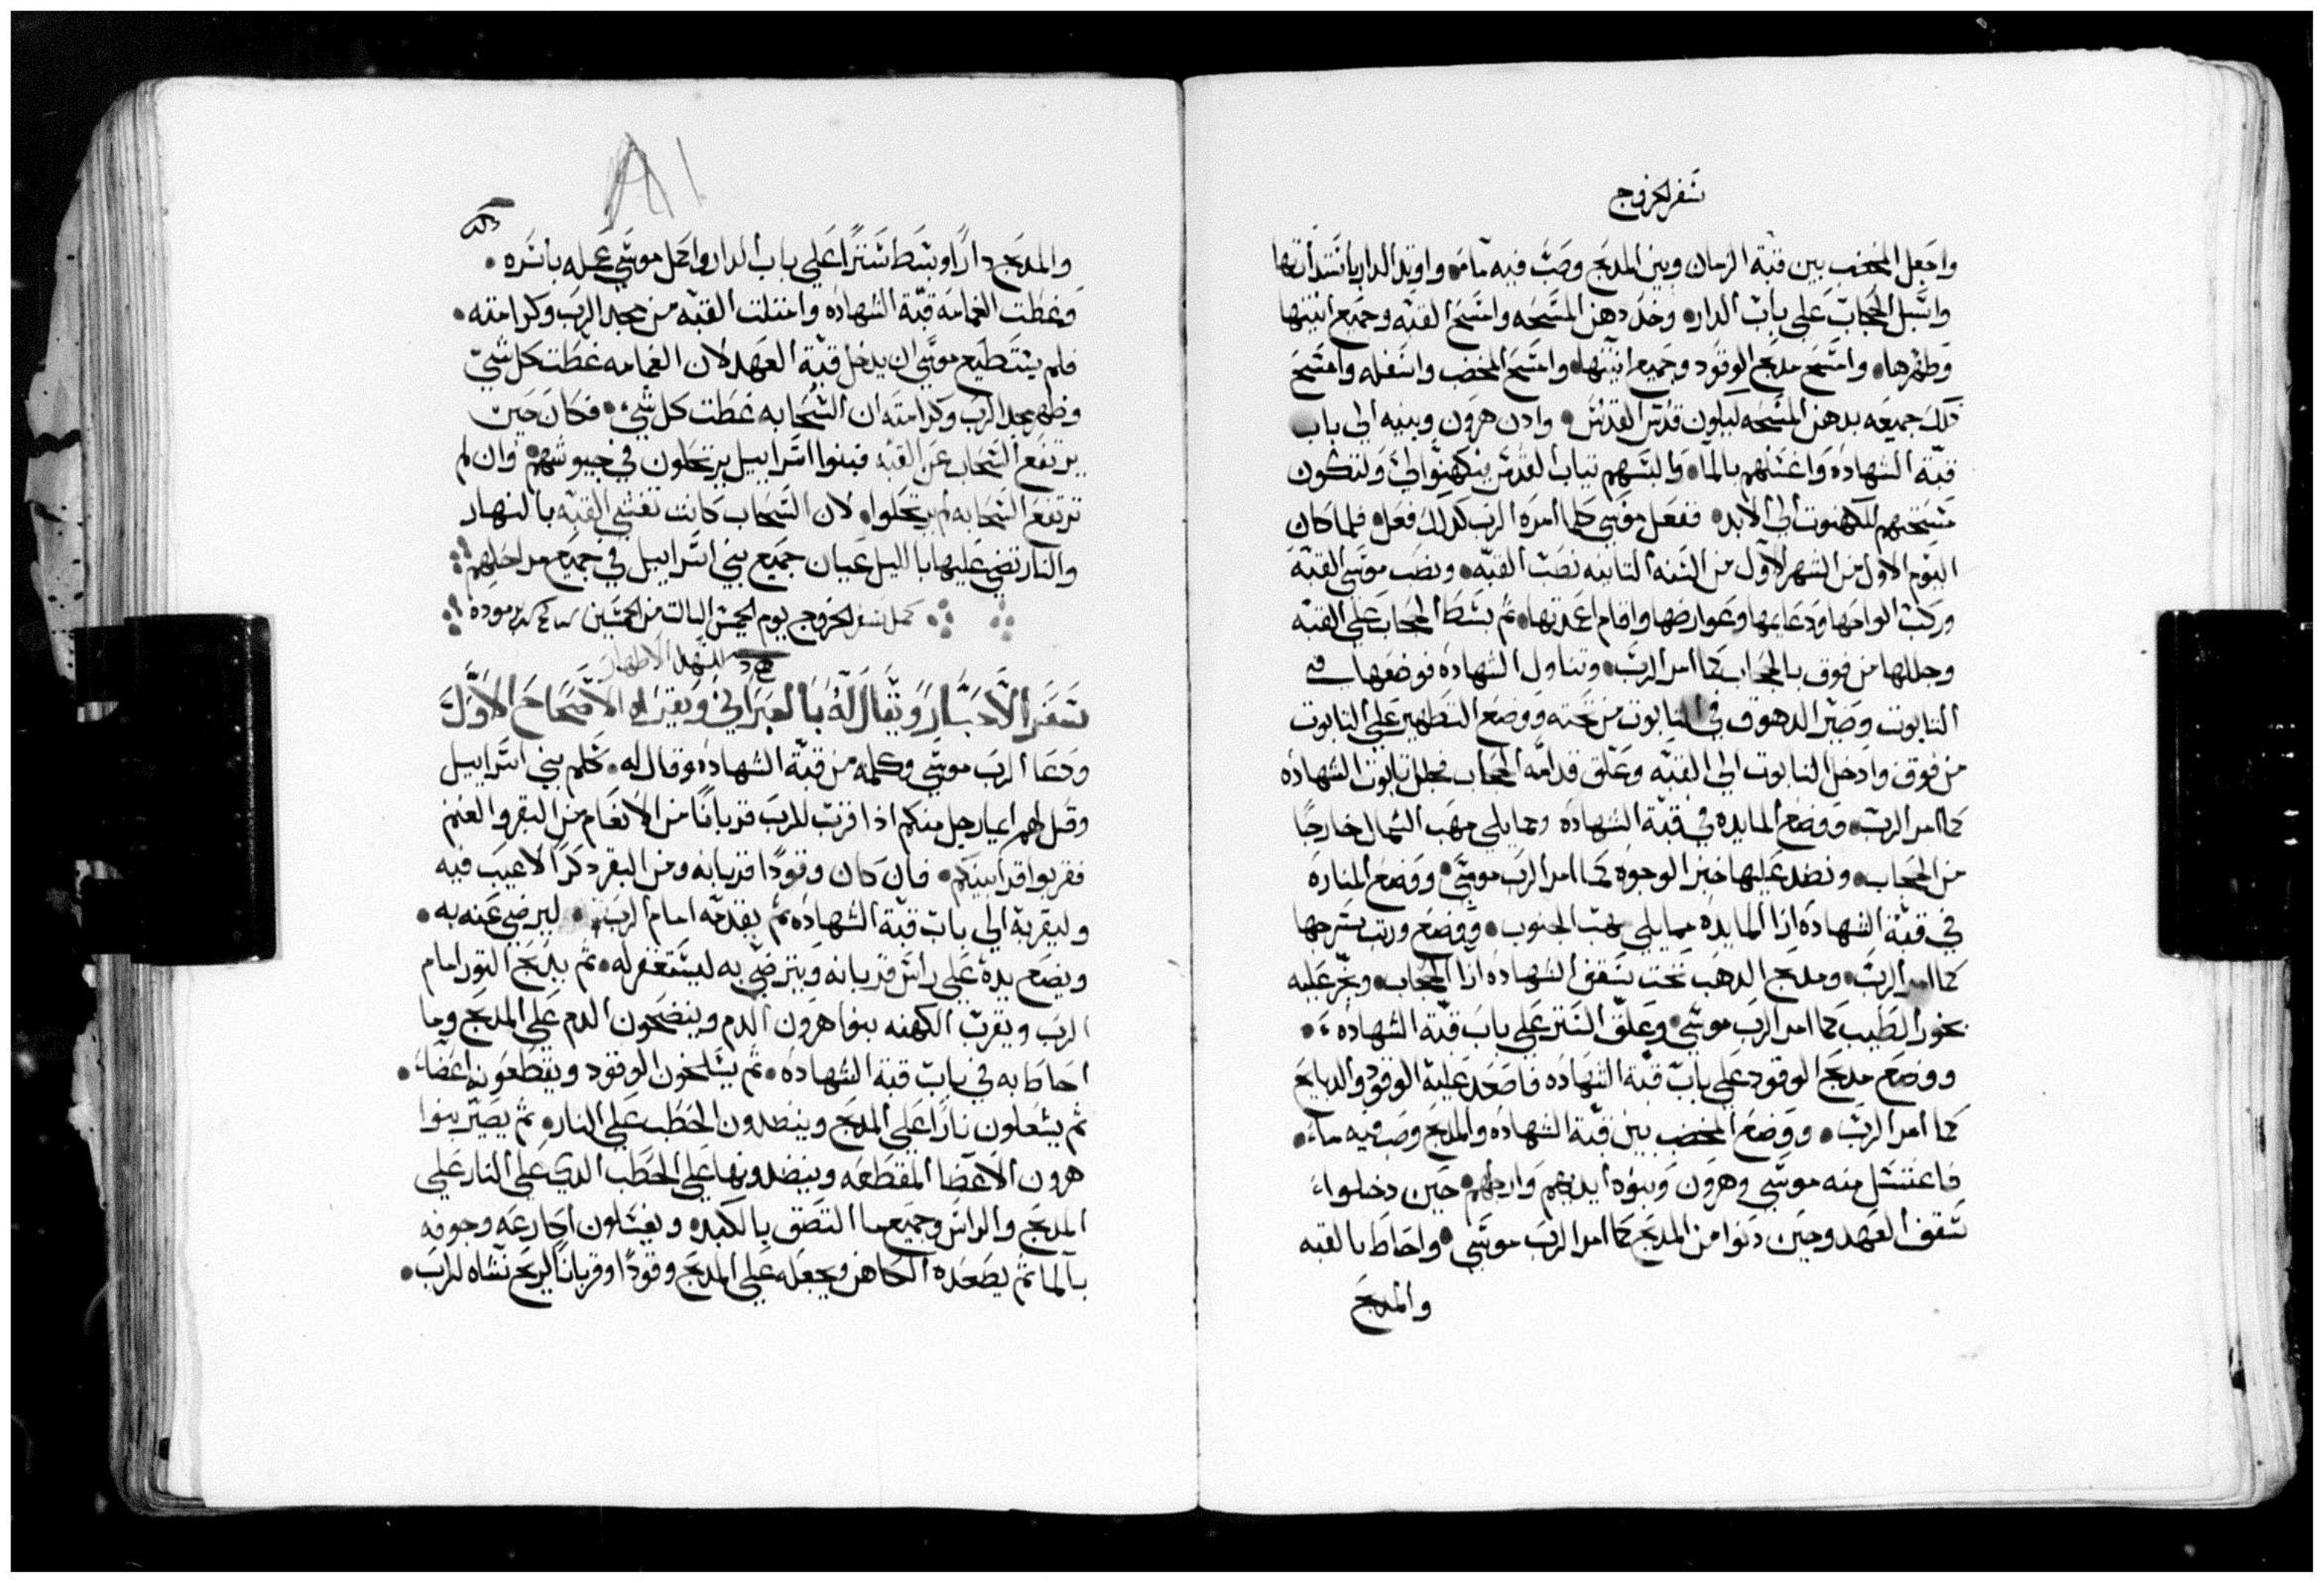 سفر الخروج
واجعل المخضب بين قبة الزمان وبين المدبح وصب فيه ماء واوتد الدار باستدارتها
واسبل الحجاب على باب الدار وخد دهن المسحه وامسح القبه وجميع انيتها
وطهرها وامسح مدبح الوقود وجميع انيتها وامسح المخضب واسفله وامسح
دلك جميعه بدهن المسحه ليكون قدس القدس وادن هرون وبنيه الي باب
قبة الشهاده واغسلهم بالما والبسهم تياب القدس ليكهنوا لي ولتكون
مسحتهم للكهنوت الي الابد ففعل موسي كلما امره الرب كدلك فعل فلما كان
اليوم الاول من الشهر الاول من السنه التانيه نصب القبه ونصب موسي القبه
وركب الواحها ودعايمها وعوارضها واقام اعمدتها تم بسط الحجاب علي القبه
وجللها من فوق بالحجاب كما امر الرب وتناول الشهاده فوضعها في
التابوت وصير الدهوق في التابوت من تحته ووضع التطهير علي التابوت
من فوق وادخل التابوت الي القبه وعلق قدامه الحجاب فجلل تابوت الشهاده
كما امر الرب ووضع المايده في قبة الشهاده ومما يلي مهب الشمال خارجا
من الحجاب ونضد عليها خبز الوجوه كما امر الرب موسي ووضع المناره
في قبة الشهاده ازا المايده مما يلي مهب الجنوب ووضع ورتب سرجها
كما امر الرب ومدبح الدهب تحت سقف الشهاده ازا الحجاب وبخر عليه
بخور الطيب كما امر الرب موسي وعلق الستر علي باب قبة الشهاده
ووضع مدبح الوقود علي باب قبة الشهاده فاصعد عليه الوقود والدبايح
كما امر الرب ووضع المخضب بين قبة الشهاده والمدبح وصب فيه ماء
فاغتسل منه موسي وهرون وبنوه ايديهم وارجلهم حين دخلوا
سقف العهد وحين دنوا من المدبح كما امر الرب موسي واحاط بالقبه
والمدبح
والمدبح دارا وبسط سترا علي باب الدار واكمل موسي عمله باسره
وغطت الغمامه قبة الشهاده وامتلت القبه من مجد الرب وكرامته
فلم يستطيع موسي ان يدخل قبة العهد لان الغمامه غطت كل شي
وظهر مجد الرب وكرامته ان السحابه غطت كل شي فكان حين
يرتفع السحاب عن القبه فبنوا اسراييل يرتحلون في جيوشهم وان لم
ترتفع السحابه لم يرتحلوا لان السحاب كانت تغشي القبه بالنهار
والنار تضي عليها بالليل عيان جميع بني اسراييل في جميع مراحلهم
كمل سفر الخروج يوم الخميس التالت من الخمسين برموده
سفر الاحبار ويقال له بالعبراني ويقرا الاصحاح الاول
ودعا الرب موسي وكلمه من قبة الشهاده وقال له كلم بني اسراييل
وقل لهم ايما رجل منكم ادا قرب للرب قربانا من الانعام من البقر والغنم
فقربوا قرابينكم فان كان وقودا قربانه ومن البقر دكرا لا عيب فيه
وليقربه الي باب قبة الشهاده تم يقدمه امام الرب ليرضي عنه به
ويضع يده علي راس قربانه ويترضي به ليستغفر له تم يدبح التور امام
الرب ويقرب الكهنه بنوا هرون الدم وينضحون الدم علي المدبح وما
احاط به في باب قبة الشهاده تم يسلخون الوقود ويقطعونه اعضاء
تم يشعلون نارا علي المدبح وينضدون الحطب علي النار تم يصير بنوا
هرون الاعضا المقطعه وينضدونها علي الحطب الدي علي النار علي
المدبح والراس وجميع ما التصق بالكبد ويغسلون اكارعه وجوفه
بالما تم يصعده الكاهن ويجعله علي المدبح وقودا وقربانا لريح نشاه للرب